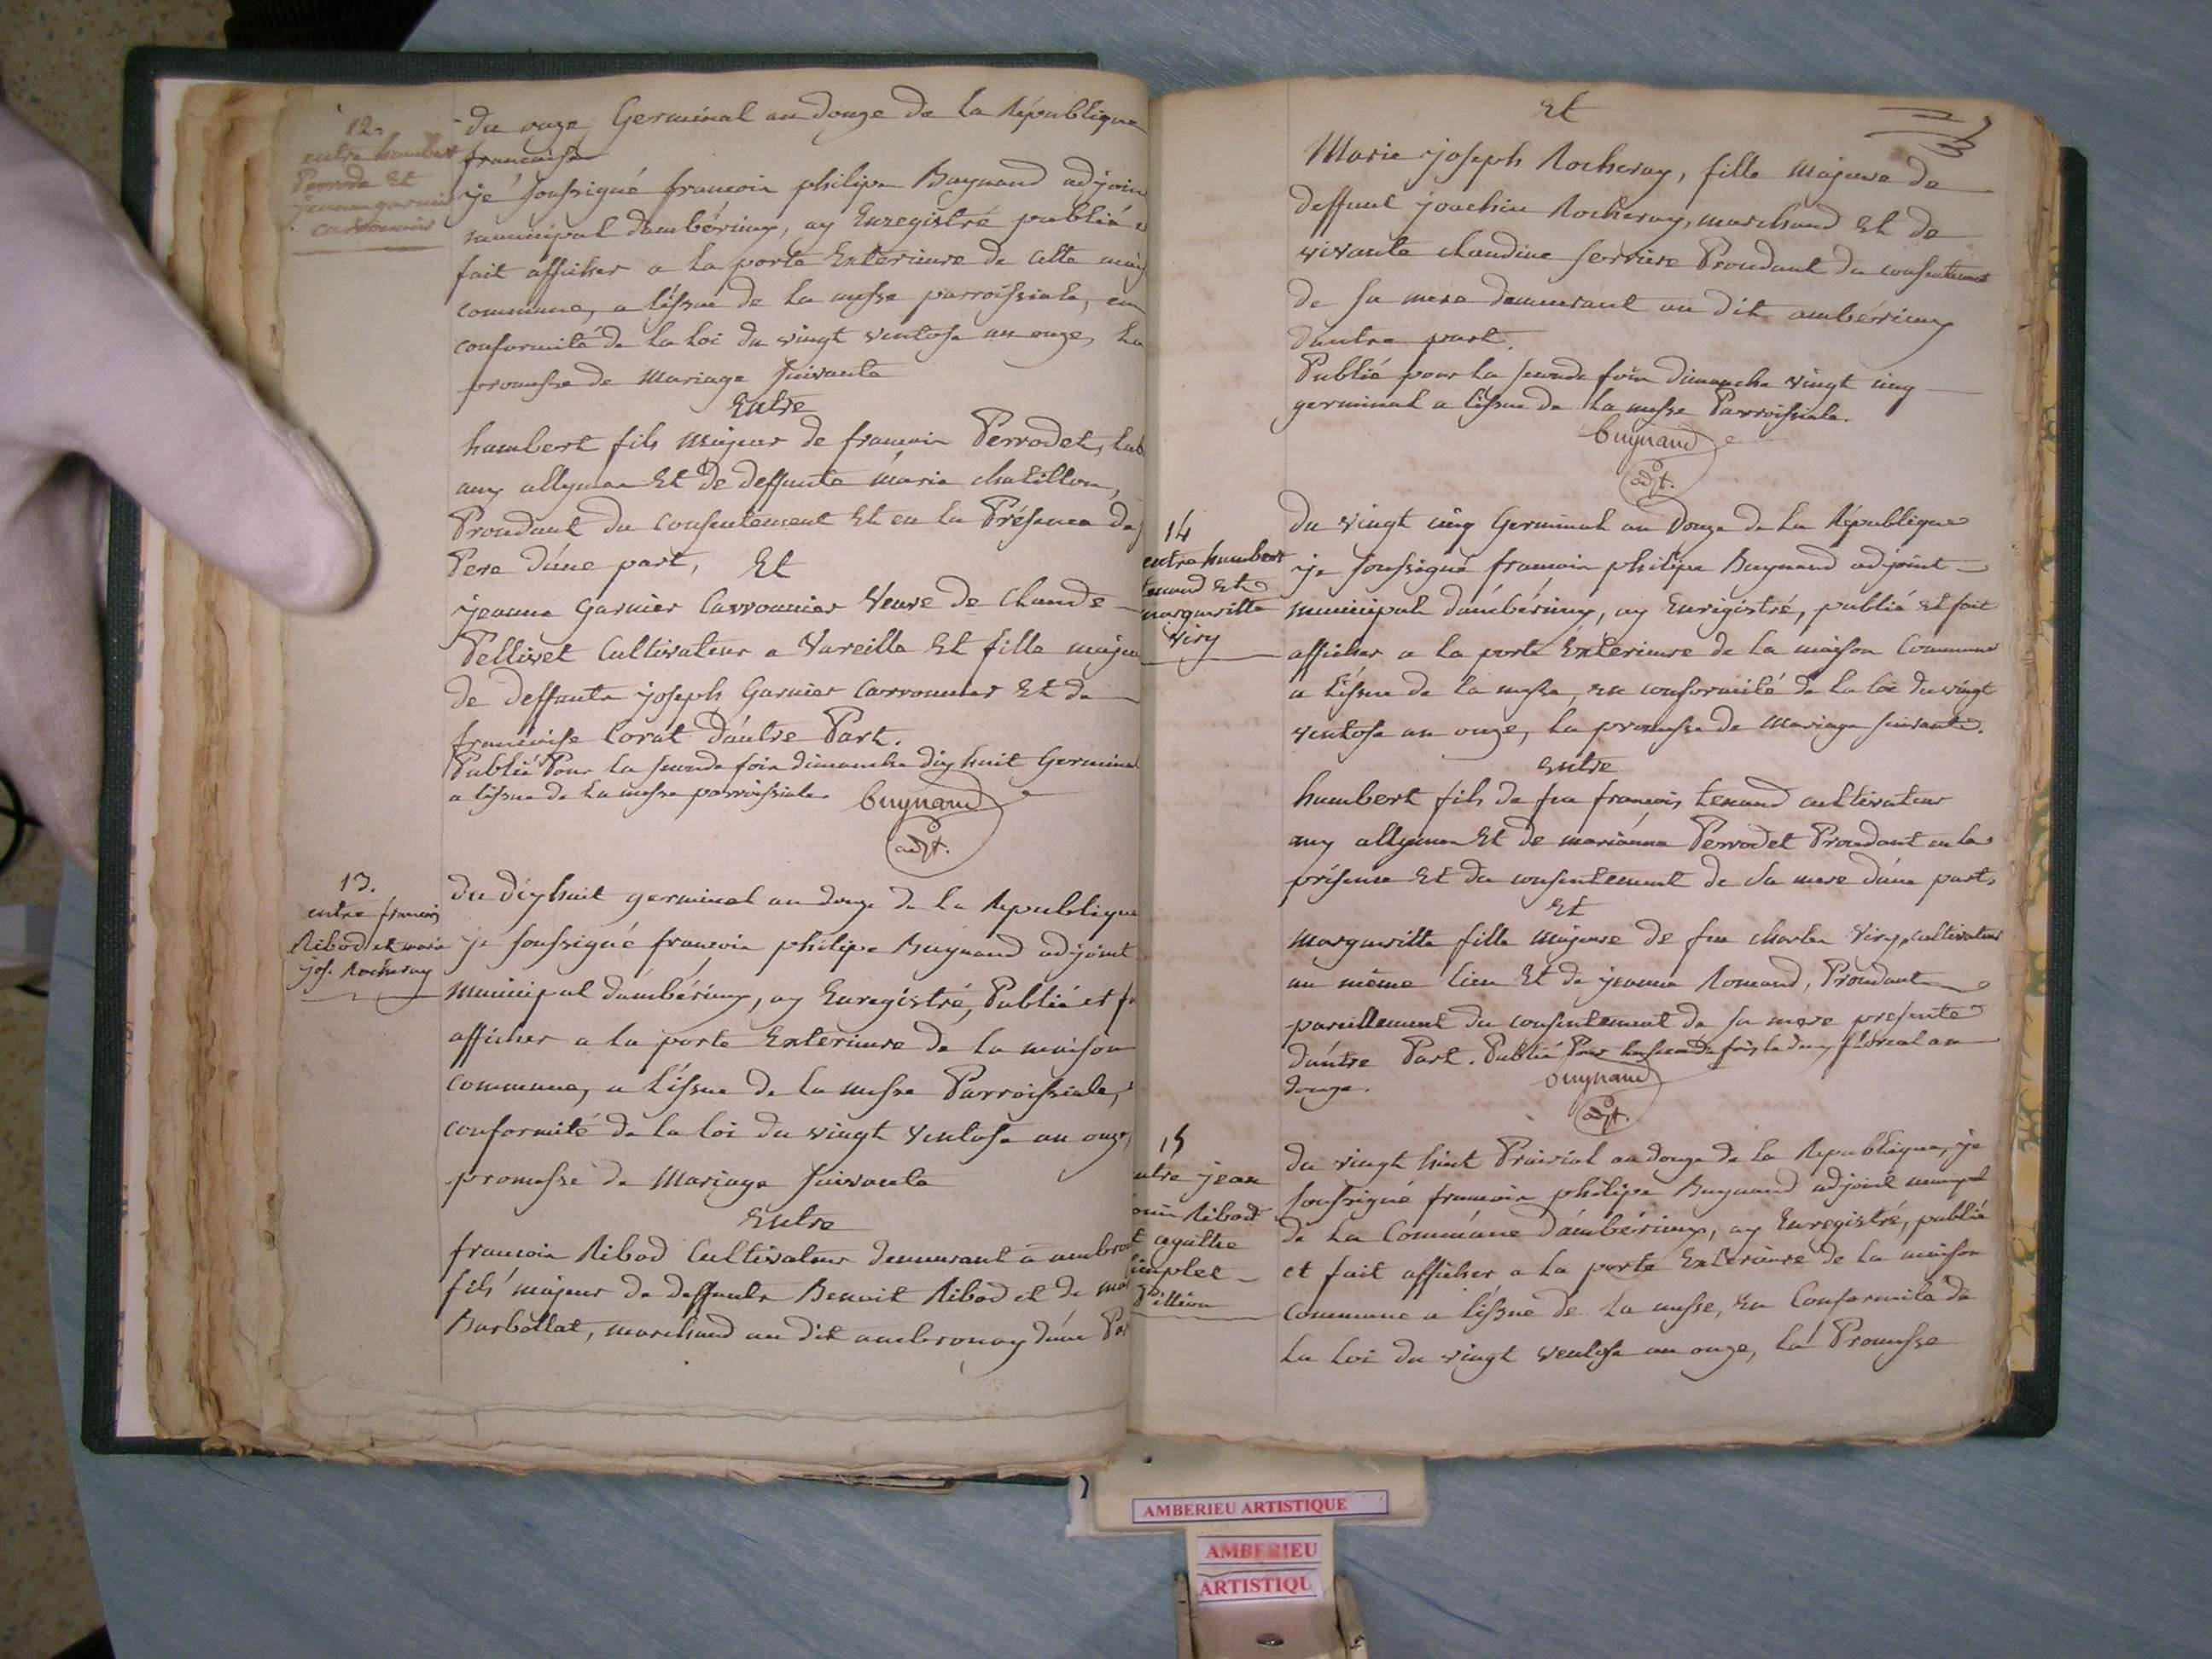 12.
entre humbert
Perrodet Et
jeanne garnier
carronnier
du onze Germinal an douze de la République
francaise
je soussigné francois philipe Buynand adjoin
municipal d'ambérieux, ay Enregistré publié e
fait afficher a la porte Exterieure de cette mais
commune, a l'issue de la messe parroissiale, en
conformité de la Loi du vingt ventose an onze, La
promesse de Mariage suivante
Entre
humbert fils majeur de francois Perrodet, hab
aux allymes Et de deffunte marie chatillon,
Procedant du consentement Et en la Présence de s
Pere d'une part, Et
jeanne Garnier Carronnier Veuve de claude
Pellivet Cultivateur a Vareille Et fille majeu
de deffunte joseph Garnier Carronnier Et de
francoise Corat d'autre Part.
Publié Pour la seconde fois dimanche dix huit Germinal
a l'issue de la messe parroissiale. buynand
adjt.
13.
entre francois
Ribod et marie
jos. Rocheray
du dix huit germinal an douze de la Republique
je soussigné francois philipe Buynand adjoint
Municipal d'ambérieux, ay Enregistré, Publié et f
afficher a la porte Exterieure de la maison
commune, a l'issue de la messe Parroissiale,
conformité de la loi du vingt Ventose an onze,
promesse de Mariage suivante
Entre
francois Ribod Cultivateur demeurant a ambron
fils majeur de deffunte Benoit Ribod et de ma
Barbollat, marchand au dit ambronay d'une Par
Et
Marie joseph Rocheray, fille Majeure de
deffunt joachin Rocheray, marchand Et de
vivante claudine serriere Procedant du consentement
de sa mere demeurant au dit ambérieux
d'autre part.
Publié pour la seconde fois dimanche vingt cinq
germinal a l'issue de la messe Parroissiale.
buynand
adjt.
14
entre humbert
tenand Et
margueritte
Viry
du vingt cinq Germinal an Douze de la République
je soussigné francois philipe Buynand adjoint
municipal d'ambérieux, ay Enrigistré, publié et fait
afficher a la porte Exterieure de la maison Commune
a l'issue de la messe, en conformité de la loi du vingt
ventose an onze, la promesse de Mariage suivante.
entre
humbert fils de feu francois tenand cultivateur
aux allymes Et de marianne Perrodet Procedant en la
présence Et du consentement de sa mere d'une part,
Et
Margueritte fille majeure de feu charles Viry, cultivateur
au même lieu Et de jeanne Romand, Procedant
pareillement du consentement de sa mere présente
d'autre Part. Publié Pour la seconde fois le deux floreal an
douze. buynand
adjt.
15
ntre jean
Ribod
t agathe
Pittion
du vingt huit Prairial an douze de la Republique, je
soussigné francois philipe Buynand adjoint municipal
de la Commune d'ambérieux, ay Enregistré, publié
et fait afficher a la porte Exterieure de la maison
Commune a l'issue de la messe, En Conformité de
la Loi du vingt ventose an onze, la Promesse
AMBERIEU ARTISTIQUE
AMBERIEU
ARTISTIQU